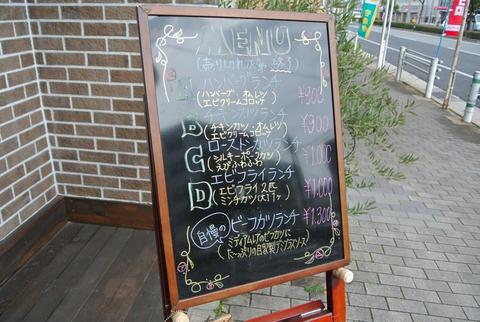 MENU
(売り切れ次第終了)
A ハンバーグランチ
(ハンバーグ・オムレツ ¥900
エビクリームコロッケ
B チキンカツランチ
(チキンカツ・オムレツ ¥900
エビクリームコロッケ
C ローストンカツランチ
(シルキーポークカツ ¥1,000
えびふわふわ
D エビフライランチ
(エビフライ2匹 ¥1,000
ミンチカツ(大)1ヶ
自慢の ビーフカツランチ ¥1,300
(ミディアムレアのビフカツに
たっぷりの自家製デミグラスソース)